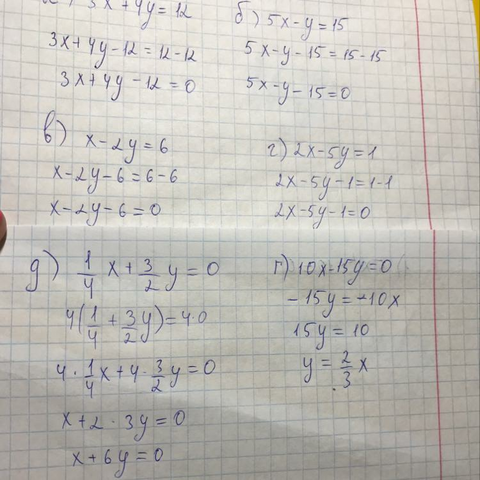 3x+4y=12
3x+4y-12=12-12
3x+4y-12=0
б) 5x-y=15
5x-y-15=15-15
5x-y-15=0
в) x-2y=6
x-2y-6=6-6
x-2y-6=0
г) 2x-5y=1
2x-5y-1=1-1
2x-5y-1=0
д) 1/4 x + 3/2 y = 0
4(1/4 + 3/2 y) = 4·0
4·1/4 x + 4·3/2 y = 0
x+2·3y=0
x+6y=0
г) 10x-15y=0
-15y=-10x
15y=10
y=2/3 x